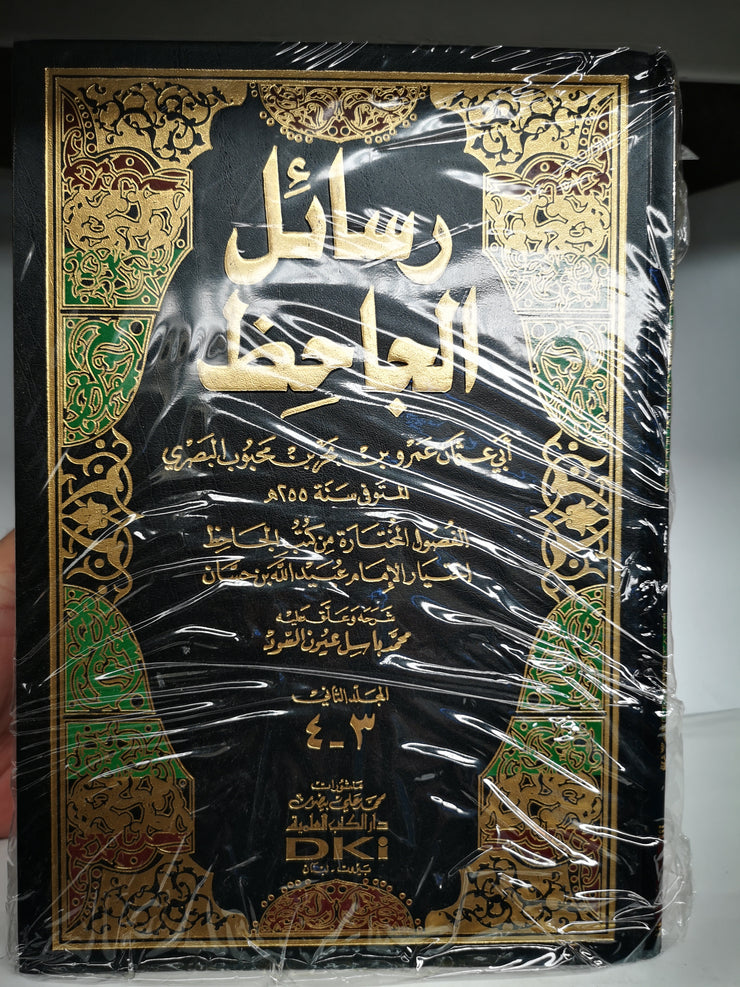 رسائل
الجاحظ
أبي عثمان عمرو بن بحر بن محبوب البصري
المتوفى سنة ٢٥٥ هـ
الفصول المختارة من كتب الجاحظ
اختيار الإمام عبيد الله بن حسان
شرحه وعلق عليه
محمد باسل عيون السود
المجلد الثاني
٣ - ٤
منشورات
محمد علي بيضون
دار الكتب العلمية
DKi
بيروت - لبنان